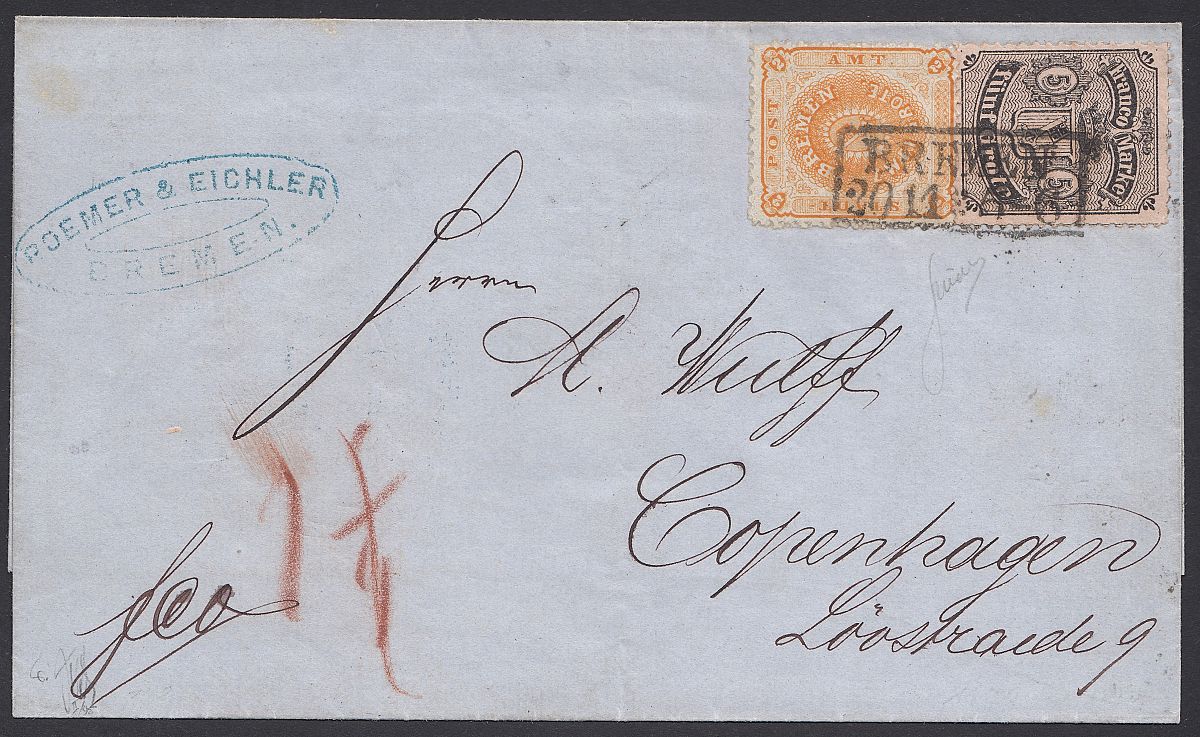 POEMER & EICHLER
BREMEN.
2 AMT 2
POST
BREMEN
2 2
franco Marke
5 5
fünf Grote
BREMEN
20 11
Herrn
A. Wulff
Copenhagen
Löostraede 9
fco